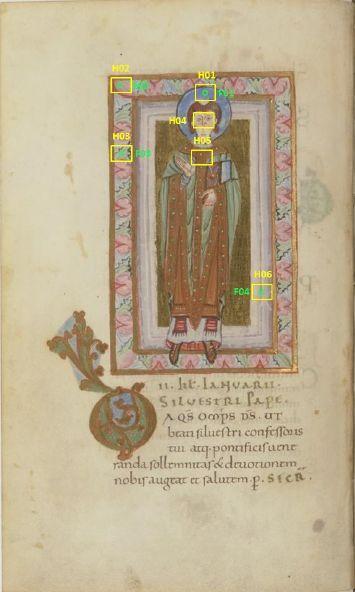 H01
H02
F01
H04
H03
H05
H06
F04
II. kł. IANVARII.
SILVESTRI PAPE.
DS. UT
beati silvestri confessoris
tui atq; pontificis vene
randa sollemnitas & devotionem
nobis augeat et salutem p. SECR.